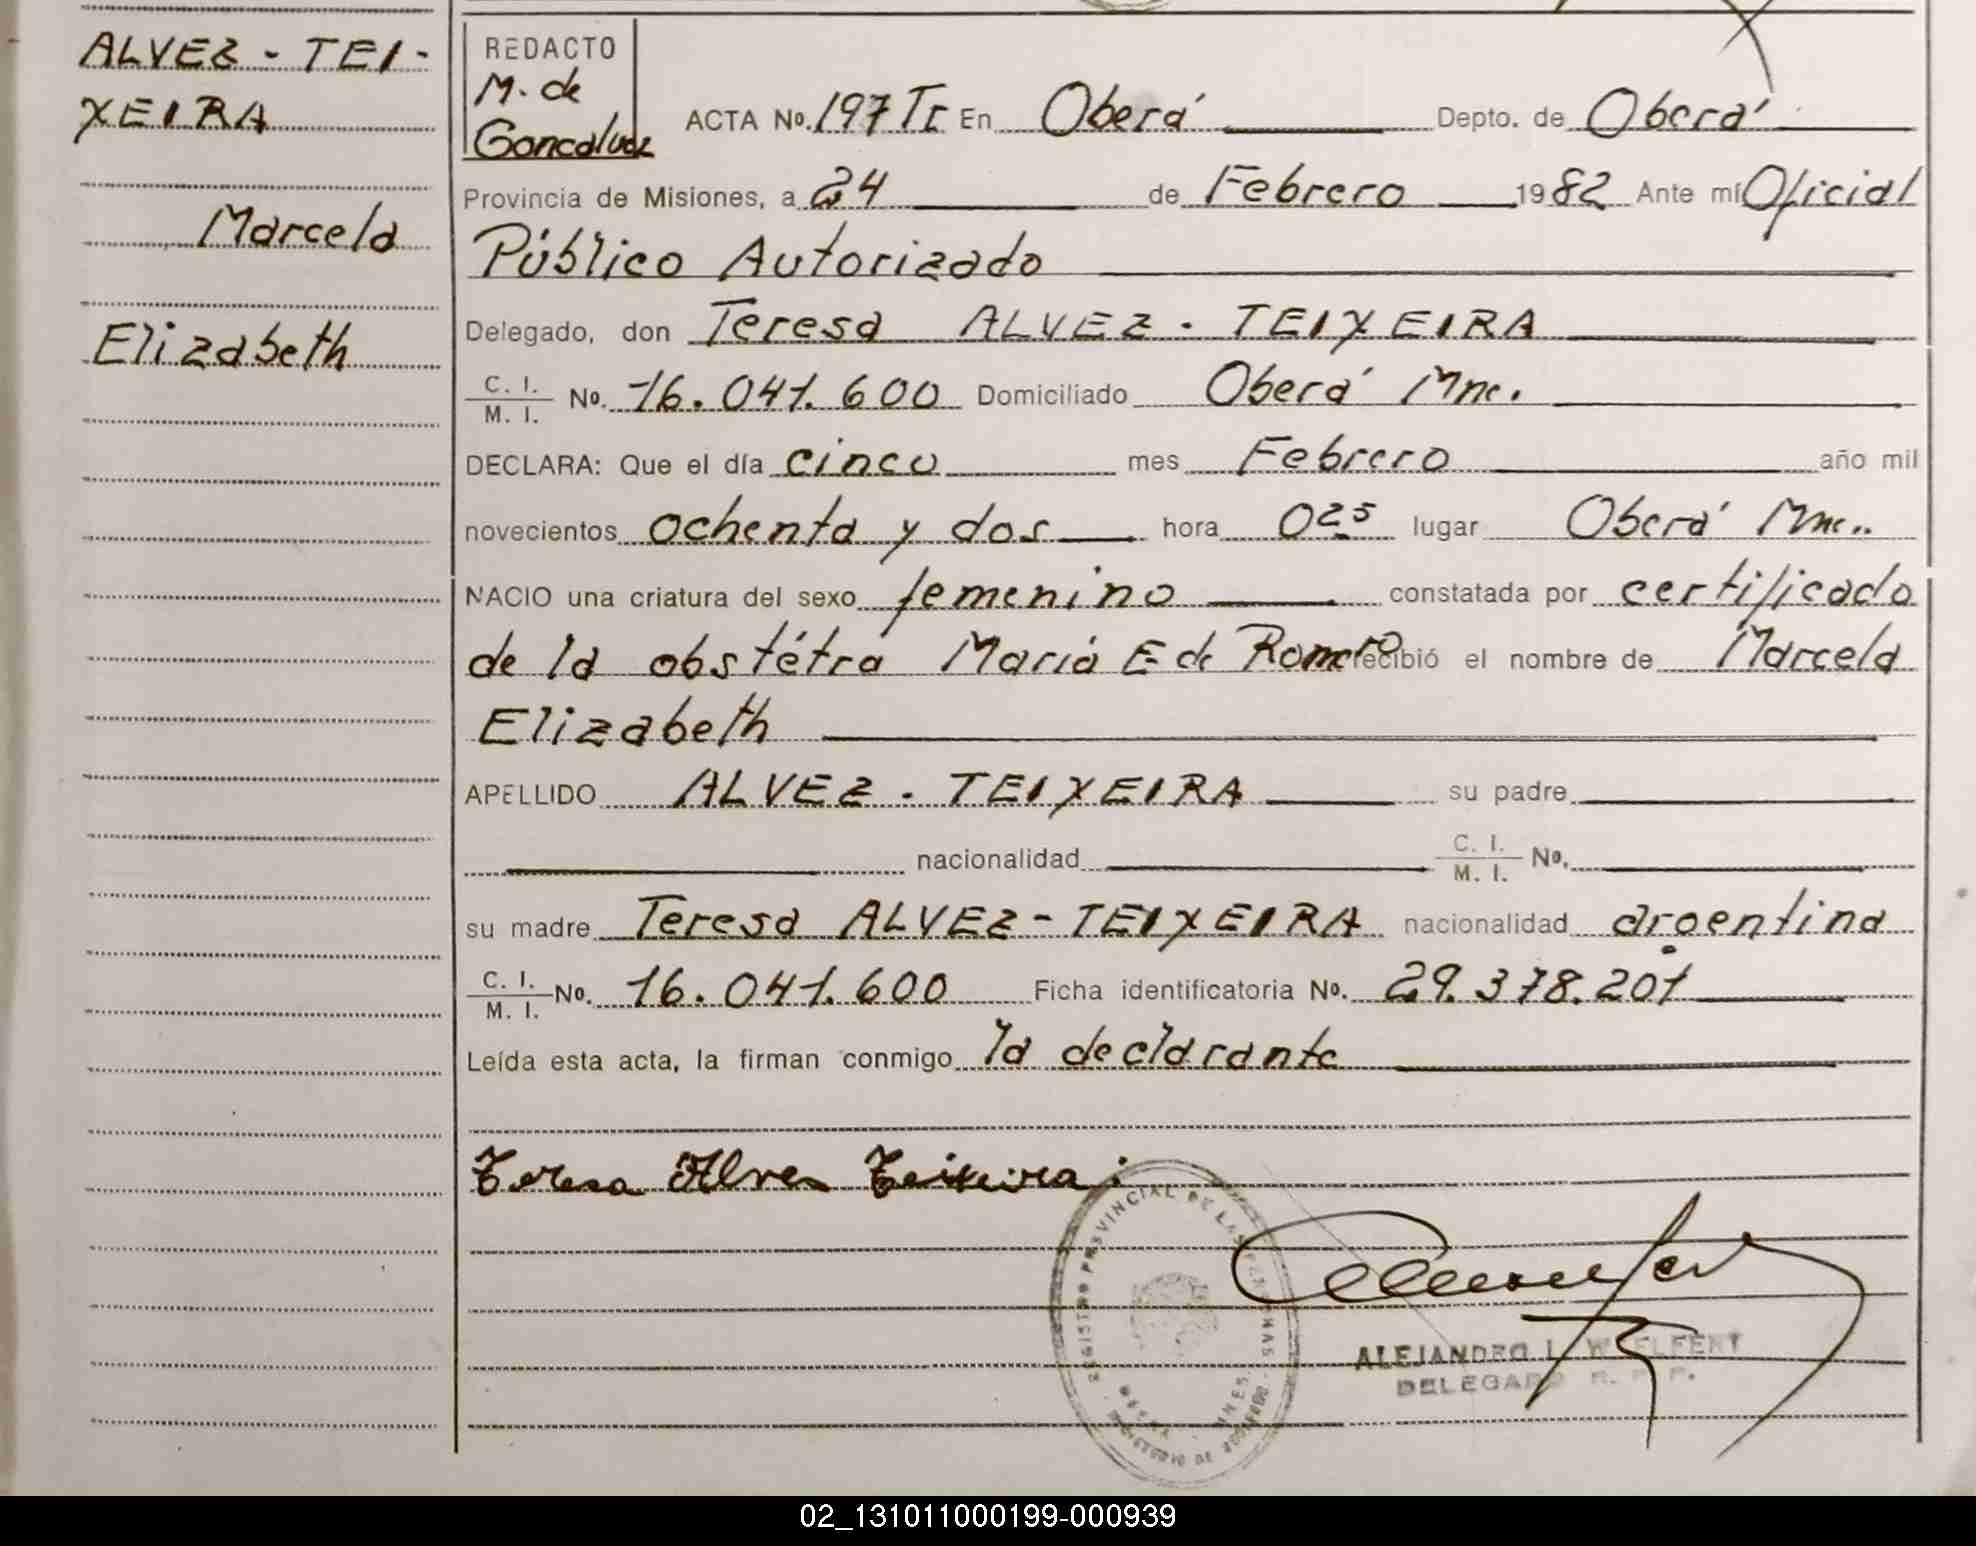 ALVEZ - TEI-
XEIRA
Marcela
Elizabeth
REDACTO
M. de
Goncalvez
ACTA No. 197 TI En Oberá Depto. de Oberá
Provincia de Misiones, a 24 de Febrero 1982 Ante mí Oficial
Público Autorizado
Delegado, don Teresa ALVEZ - TEIXEIRA
C. I.
M. I. No. 16.041.600 Domiciliado Oberá Mnes.
DECLARA: Que el día cinco mes Febrero año mil
novecientos ochenta y dos hora 0 25 lugar Oberá Mnes.
NACIO una criatura del sexo femenino constatada por certificado
de la obstétra María E de Romero recibió el nombre de Marcela
Elizabeth
APELLIDO ALVEZ - TEIXEIRA su padre
nacionalidad C. I.
M. I. No.
su madre Teresa ALVEZ - TEIXEIRA nacionalidad argentina
C. I.
M. I. No. 16.041.600 Ficha identificatoria No. 29.378.201
Leída esta acta, la firman conmigo la declarante
Teresa Alves Teixeira
REGISTRO PROVINCIAL DE LAS PERSONAS
ALEJANDRO I.
DELEGADO R. P. P.
02_131011000199-000939